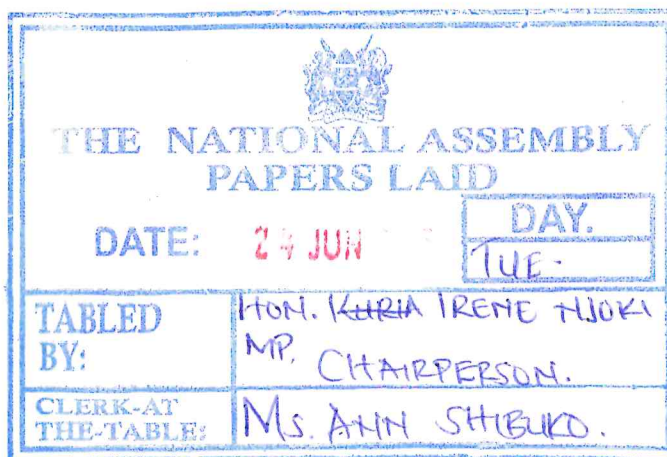 THE NATIONAL ASSEMBLY
PAPERS LAID
DATE: 24 JUN
DAY.
TUE.
TABLED BY:
HON. KURIA IRENE NJOKI
MP. CHAIRPERSON.
CLERK-AT
THE-TABLE:
Ms. ANN SHIBUKO.